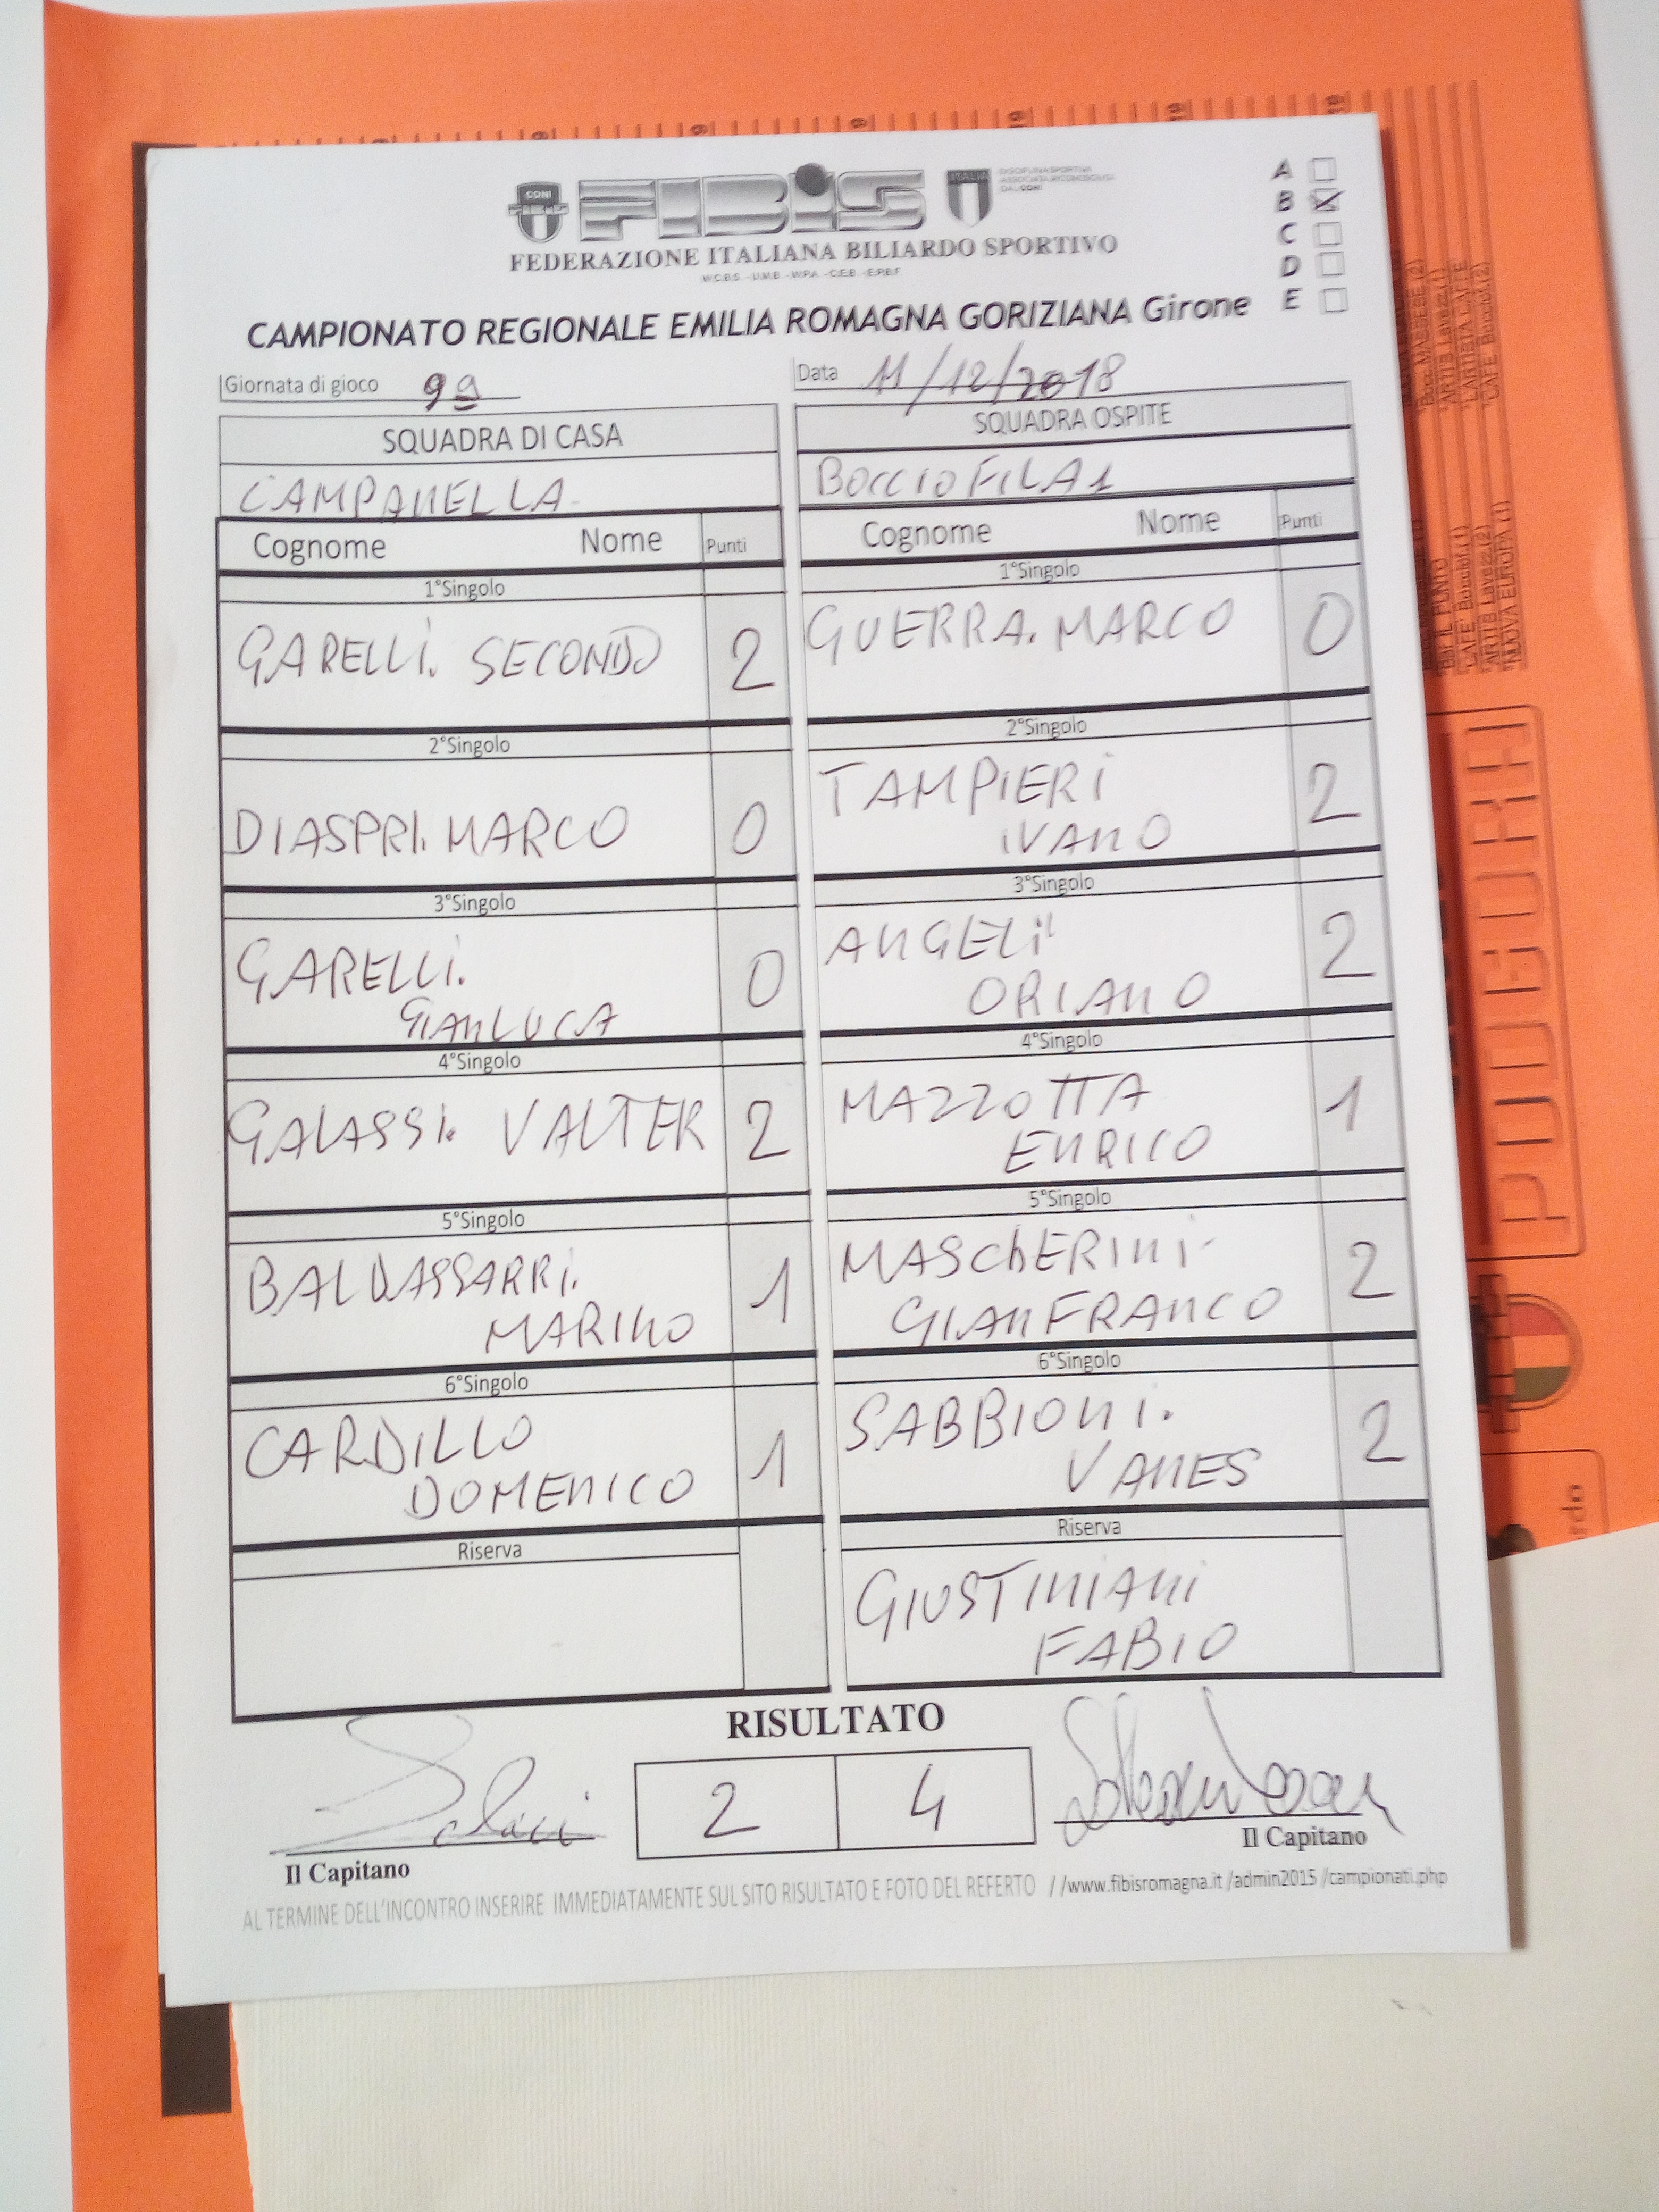 CONI
FIBiS
ITALIA
DISCIPLINA SPORTIVA
ASSOCIATA RICONOSCIUTA
DAL CONI
FEDERAZIONE ITALIANA BILIARDO SPORTIVO
W.C.B.S. - U.M.B. - W.P.A. - C.E.B. - E.P.B.F.
A
B
C
D
E
CAMPIONATO REGIONALE EMILIA ROMAGNA GORIZIANA Girone
Giornata di gioco 9a Data 11/12/2018
SQUADRA DI CASA SQUADRA OSPITE
CAMPANELLA BOCCIOFILA 1
Cognome Nome Punti Cognome Nome Punti
1°Singolo 1°Singolo
GARELLI. SECONDO 2 GUERRA. MARCO 0
2°Singolo 2°Singolo
DIASPRI. MARCO 0 TAMPIERI
IVANO 2
3°Singolo 3°Singolo
GARELLI.
GIANLUCA 0 ANGELI
ORIANO 2
4°Singolo 4°Singolo
GALASSI. VALTER 2 MAZZOTTA
ENRICO 1
5°Singolo 5°Singolo
BALDASSARRI.
MARINO 1 MASCHERINI
GIANFRANCO 2
6°Singolo 6°Singolo
CARDILLO
DOMENICO 1 SABBIONI.
VANES 2
Riserva Riserva
GIUSTINIANI
FABIO
RISULTATO
2 4
Il Capitano Il Capitano
AL TERMINE DELL'INCONTRO INSERIRE IMMEDIATAMENTE SUL SITO RISULTATO E FOTO DEL REFERTO //www.fibisromagna.it /admin2015 /campionati.php